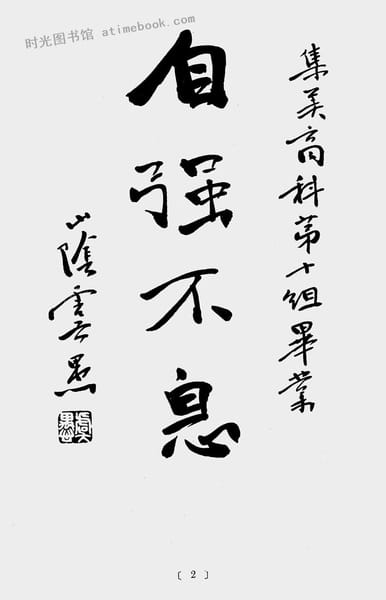 时光图书馆 atimebook.com
集美商科第十組畢業
自强不息
山陰虞愚
〔 2 〕